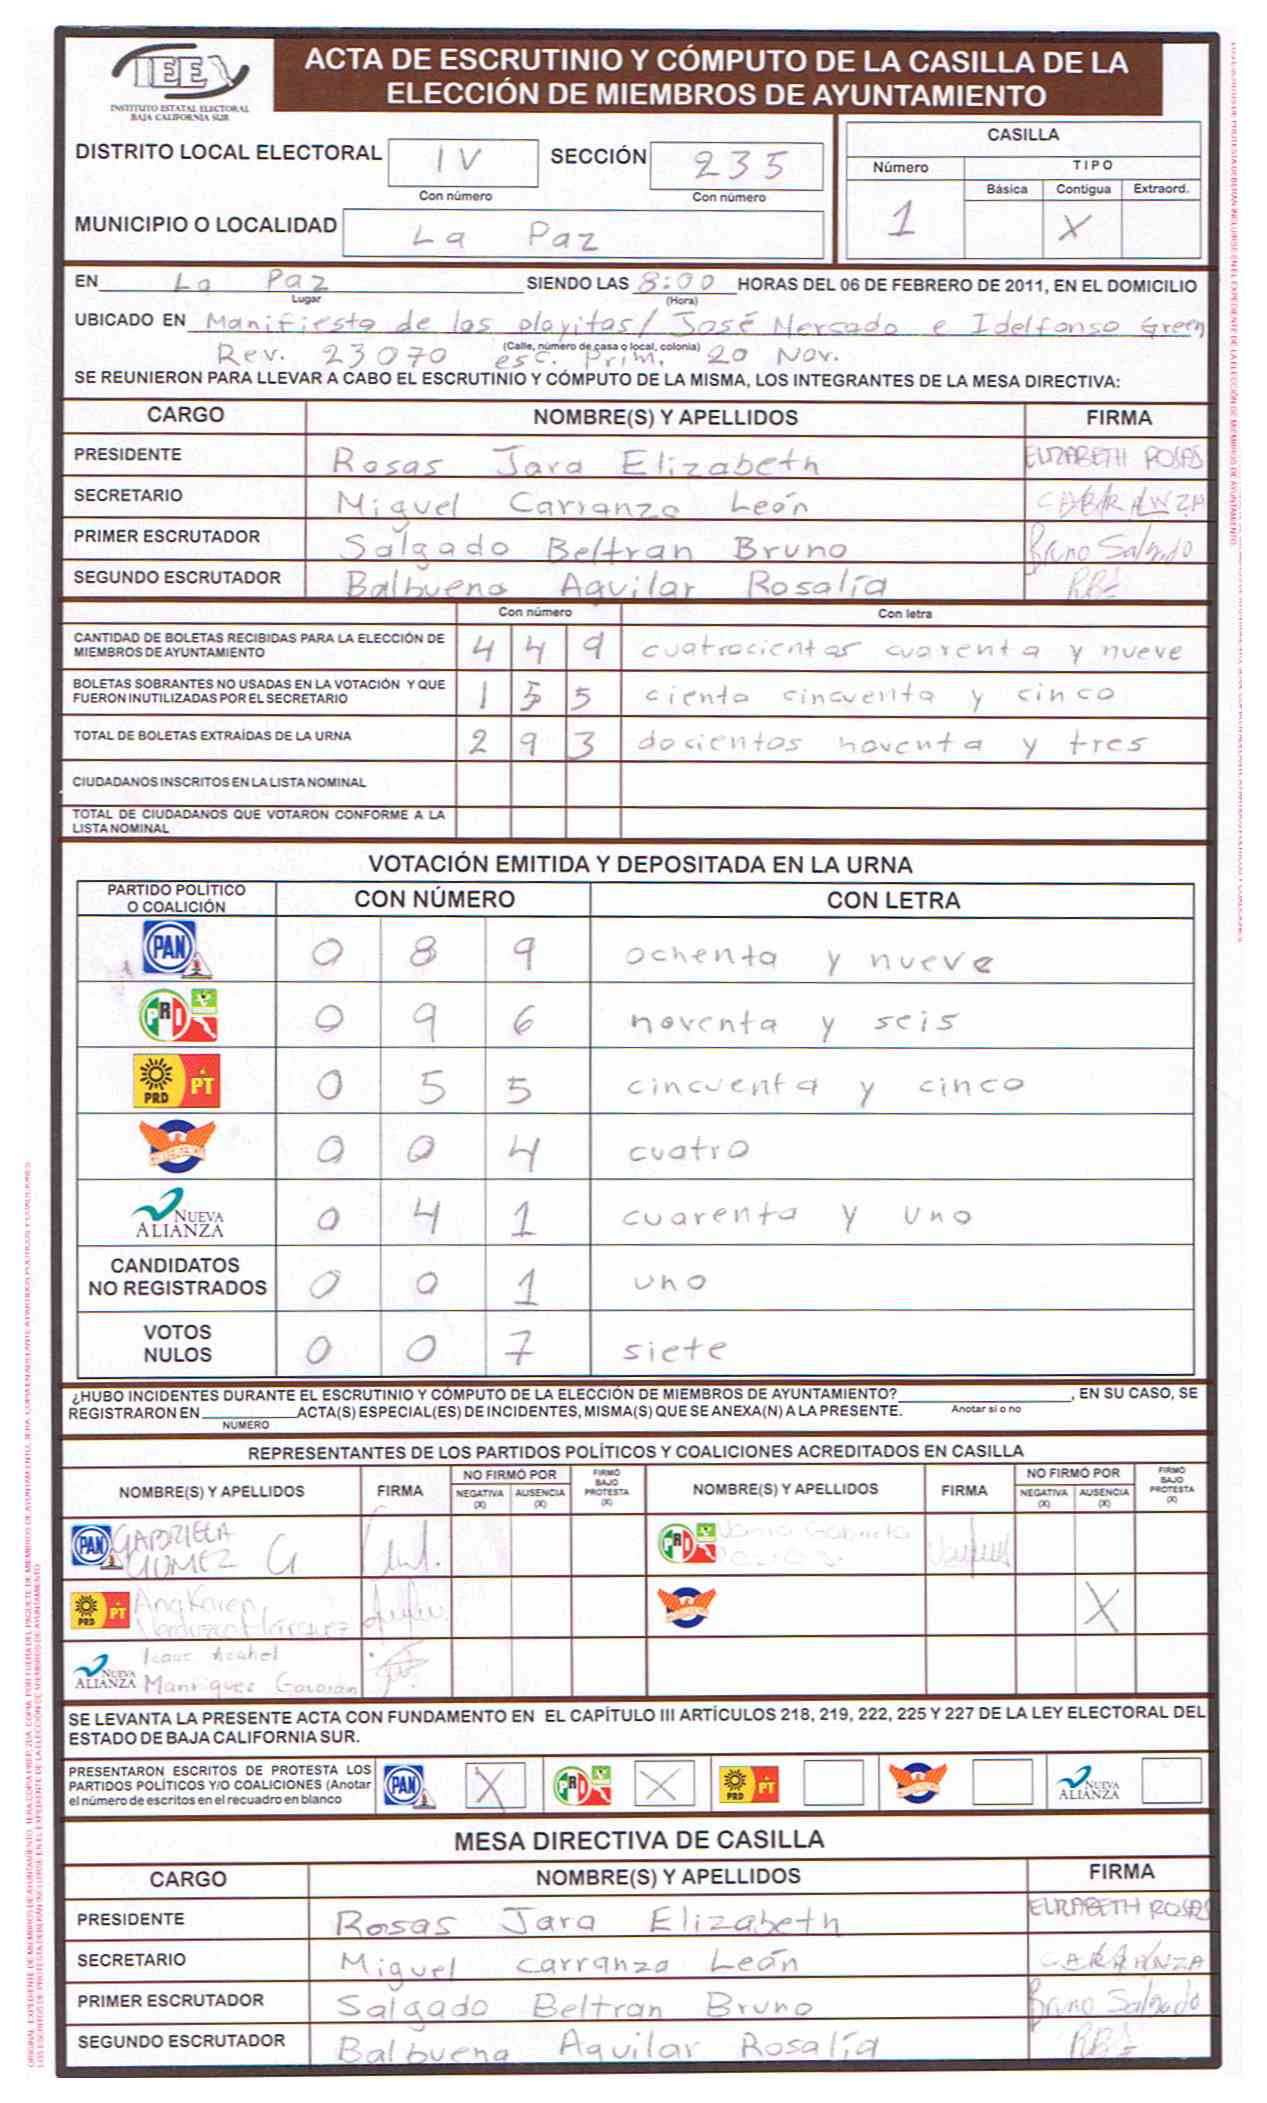 IEE
INSTITUTO ESTATAL ELECTORAL
BAJA CALIFORNIA SUR
ACTA DE ESCRUTINIO Y CÓMPUTO DE LA CASILLA DE LA
ELECCIÓN DE MIEMBROS DE AYUNTAMIENTO
DISTRITO LOCAL ELECTORAL IV SECCIÓN 235
Con número Con número
MUNICIPIO O LOCALIDAD La Paz
CASILLA
Número TIPO
Básica Contigua Extraord.
1 X
EN La Paz SIENDO LAS 8:00 HORAS DEL 06 DE FEBRERO DE 2011, EN EL DOMICILIO
Lugar (Hora)
UBICADO EN Manifiesta de las playitas/ José Mercado e Idelfonso Green
(Calle, número de casa o local, colonia)
Rev. 23070 esc. Prim. 20 Nov.
SE REUNIERON PARA LLEVAR A CABO EL ESCRUTINIO Y CÓMPUTO DE LA MISMA, LOS INTEGRANTES DE LA MESA DIRECTIVA:
CARGO NOMBRE(S) Y APELLIDOS FIRMA
PRESIDENTE Rosas Jara Elizabeth ELIZABETH ROSAS
SECRETARIO Miguel Carranza León CARRANZA
PRIMER ESCRUTADOR Salgado Beltran Bruno Bruno Salgado
SEGUNDO ESCRUTADOR Balbuena Aguilar Rosalía
Con número Con letra
CANTIDAD DE BOLETAS RECIBIDAS PARA LA ELECCIÓN DE
MIEMBROS DE AYUNTAMIENTO 4 4 9 cuatrocientos cuarenta y nueve
BOLETAS SOBRANTES NO USADAS EN LA VOTACIÓN Y QUE
FUERON INUTILIZADAS POR EL SECRETARIO 1 5 5 ciento cincuenta y cinco
TOTAL DE BOLETAS EXTRAÍDAS DE LA URNA 2 9 3 docientos noventa y tres
CIUDADANOS INSCRITOS EN LA LISTA NOMINAL
TOTAL DE CIUDADANOS QUE VOTARON CONFORME A LA
LISTA NOMINAL
VOTACIÓN EMITIDA Y DEPOSITADA EN LA URNA
PARTIDO POLÍTICO
O COALICIÓN CON NÚMERO CON LETRA
PAN 0 8 9 ochenta y nueve
PRI 0 9 6 noventa y seis
PRD PT 0 5 5 cincuenta y cinco
CONVERGENCIA 0 0 4 cuatro
NUEVA ALIANZA 0 4 1 cuarenta y uno
CANDIDATOS
NO REGISTRADOS 0 0 1 uno
VOTOS
NULOS 0 0 7 siete
¿HUBO INCIDENTES DURANTE EL ESCRUTINIO Y CÓMPUTO DE LA ELECCIÓN DE MIEMBROS DE AYUNTAMIENTO? , EN SU CASO, SE
REGISTRARON EN ACTA(S) ESPECIAL(ES) DE INCIDENTES, MISMA(S) QUE SE ANEXA(N) A LA PRESENTE. Anotar si o no
NUMERO
REPRESENTANTES DE LOS PARTIDOS POLÍTICOS Y COALICIONES ACREDITADOS EN CASILLA
NOMBRE(S) Y APELLIDOS FIRMA NO FIRMÓ POR NEGATIVA (X) AUSENCIA (X) FIRMÓ BAJO PROTESTA (X) NOMBRE(S) Y APELLIDOS FIRMA NO FIRMÓ POR NEGATIVA (X) AUSENCIA (X) FIRMÓ BAJO PROTESTA (X)
PAN GABRIELA GOMEZ G PRI
PRD PT Ana Karen X
NUEVA ALIANZA Manriquez
SE LEVANTA LA PRESENTE ACTA CON FUNDAMENTO EN EL CAPÍTULO III ARTÍCULOS 218, 219, 222, 225 Y 227 DE LA LEY ELECTORAL DEL
ESTADO DE BAJA CALIFORNIA SUR.
PRESENTARON ESCRITOS DE PROTESTA LOS
PARTIDOS POLÍTICOS Y/O COALICIONES (Anotar
el número de escritos en el recuadro en blanco
PAN X PRI X PRD PT NUEVA ALIANZA
MESA DIRECTIVA DE CASILLA
CARGO NOMBRE(S) Y APELLIDOS FIRMA
PRESIDENTE Rosas Jara Elizabeth ELIZABETH ROSAS
SECRETARIO Miguel Carranza León CARRANZA
PRIMER ESCRUTADOR Salgado Beltran Bruno Bruno Salgado
SEGUNDO ESCRUTADOR Balbuena Aguilar Rosalía